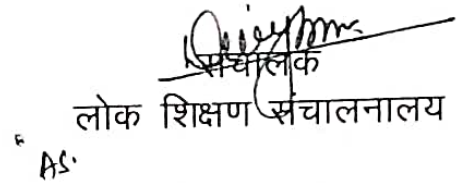 संचालक
लोक शिक्षण संचालनालय
AS.